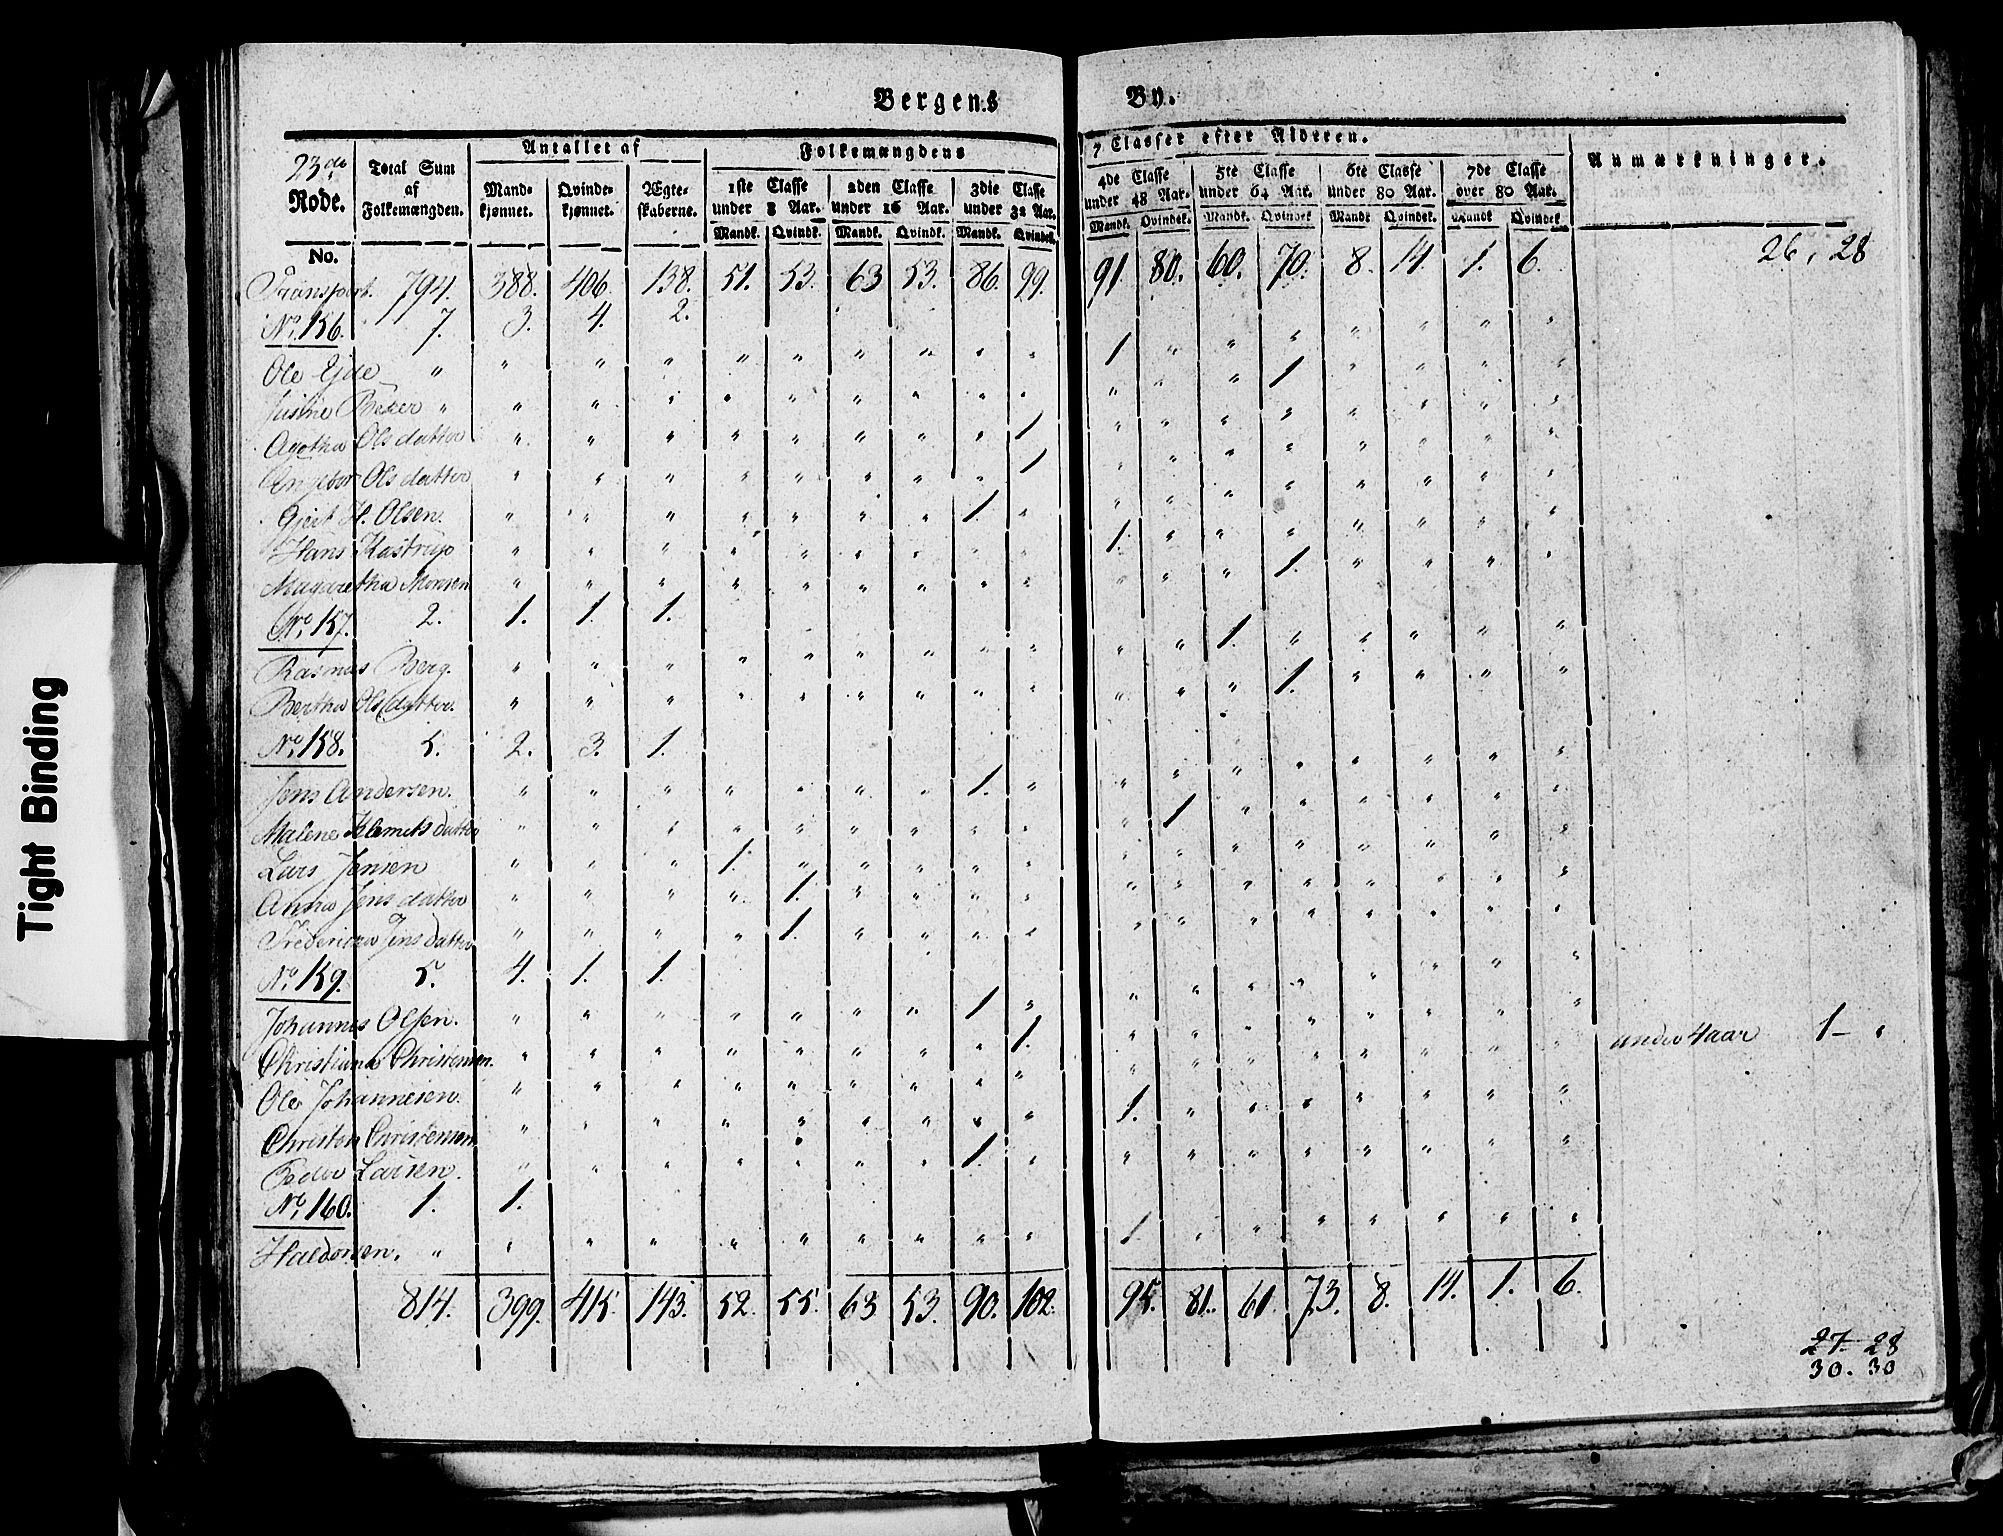 Bergens By.
23de Rode. Total Sum af Folkemængden. Antallet af Folkemængdens 7 Classer efter Alderen. Anmærkninger.
Mandkjønnet. Qvindekjønnet. Ægteskaberne. 1ste Classe under 8 Aar. 2den Classe under 16 Aar. 3die Classe under 32 Aar. 4de Classe under 48 Aar. 5te Classe under 64 Aar. 6te Classe under 80 Aar. 7de Classe over 80 Aar.
Mandk. Qvindk. Mandk. Qvindk. Mandk. Qvindek. Mandk. Qvindek. Mandk. Qvindek Mandk Qvindek. Mandk Qvindek.
No.
Transport. 794. 388. 406. 138. 51. 53. 63 53. 86. 99. 91. 80. 60. 70. 8. 14. 1. 6. 26, 28
No. 156. 7. 3. 4. 2.
Ole Eide " " " " " " " " " " 1 " " " " " " "
Baker " " " " " " " " " " " " " 1 " " " "
Agetha Olsdatter " " " " " " " " 1 " " " " " " " "
Olsdatter " " " " " " " " 1 " " " " " " " "
Giert H. Olsen. " " " " " " " 1. " " " " " " " " "
Hans Kastrup " " " " " " " " " 1. " " " " " " "
Margaretha Monsen " " " " " " " " " " " " 1. " " " "
No. 157. 2. 1. 1. 1.
Rasmus Berg. " " " " " " " " " " " 1. " " " " "
Bertha Olsdatter. " " " " " " " " " " " " 1. " " " "
No. 158. 5. 2. 3. 1.
Jens Andersen. " " " " " " " 1. " " " " " " " " "
Malene Klemetsdatter " " " " " " " " " " 1 " " " " " "
Lars Jensen " " " 1. " " " " " " " " " " " " "
Anna Jensdatter " " " " 1. " " " " " " " " " " " "
Fredericka Jensdatter " " " " 1. " " " " " " " " " " " "
No. 159. 5. 4. 1. 1.
Johannes Olsen. " " " " " " " 1 " " " " " " " " "
Christiana Christensen. " " " " " " " " 1. " " " " " " " "
Ole Johannesen. " " " " " " " " " " " " " " " " under 4 aar 1 – "
Christen Christensen " " " " " " " " " 1. " " " " " " "
Peder Larsen. " " " " " " " 1. " " " " " " " " "
No. 160. 1. 1.
Haldorsen. " " " " " " " " " " 1 " " " " " " "
814. 399. 415 143. 52. 55. 63 53. 90. 102. 95. 81. 61. 73. 8. 14. 1. 6.
27 – 28
30. 30
Tight Binding